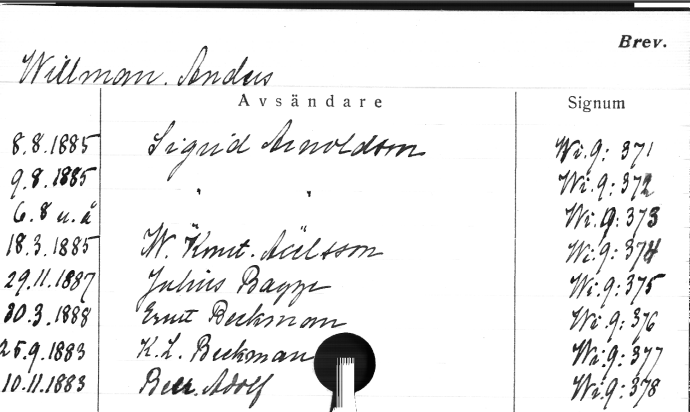 Brev.
Willman. Anders
Avsändare Signum
8.8.1885 Sigrid Arnoldson Wi.9: 371
9.8.1885 " " Wi.9: 372
6.8 u.å Wi.9: 373
18.3.1885 W. Konst. Axelsson Wi.9: 374
29.11.1887 Julius Bagge Wi.9: 375
30.3.1888 Ernst Beckman Wi.9: 376
25.9.1883 K.L. Beckman Wi.9: 377
10.11.1883 Beer. Adolf Wi.9: 378